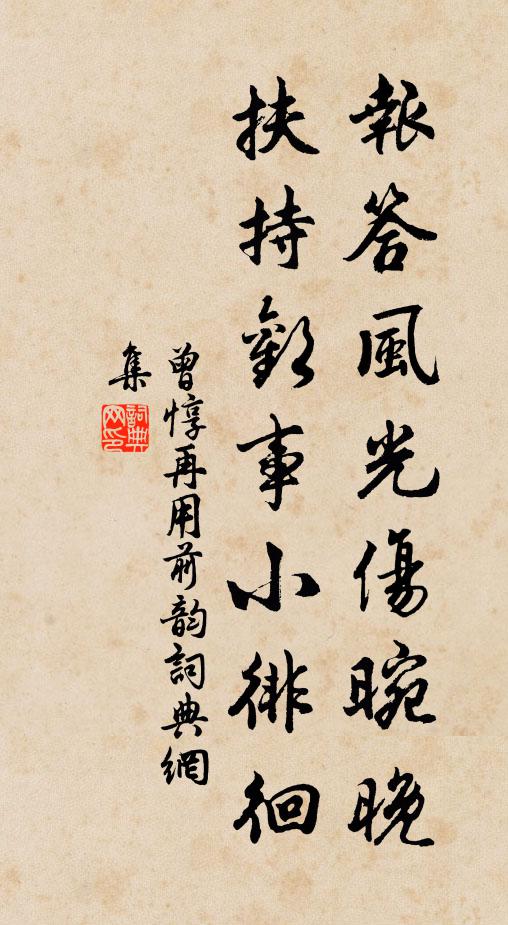 報答風光傷晼晚
扶持歡事小徘徊
曾惇再用前韵詞典網
集
詞典網印